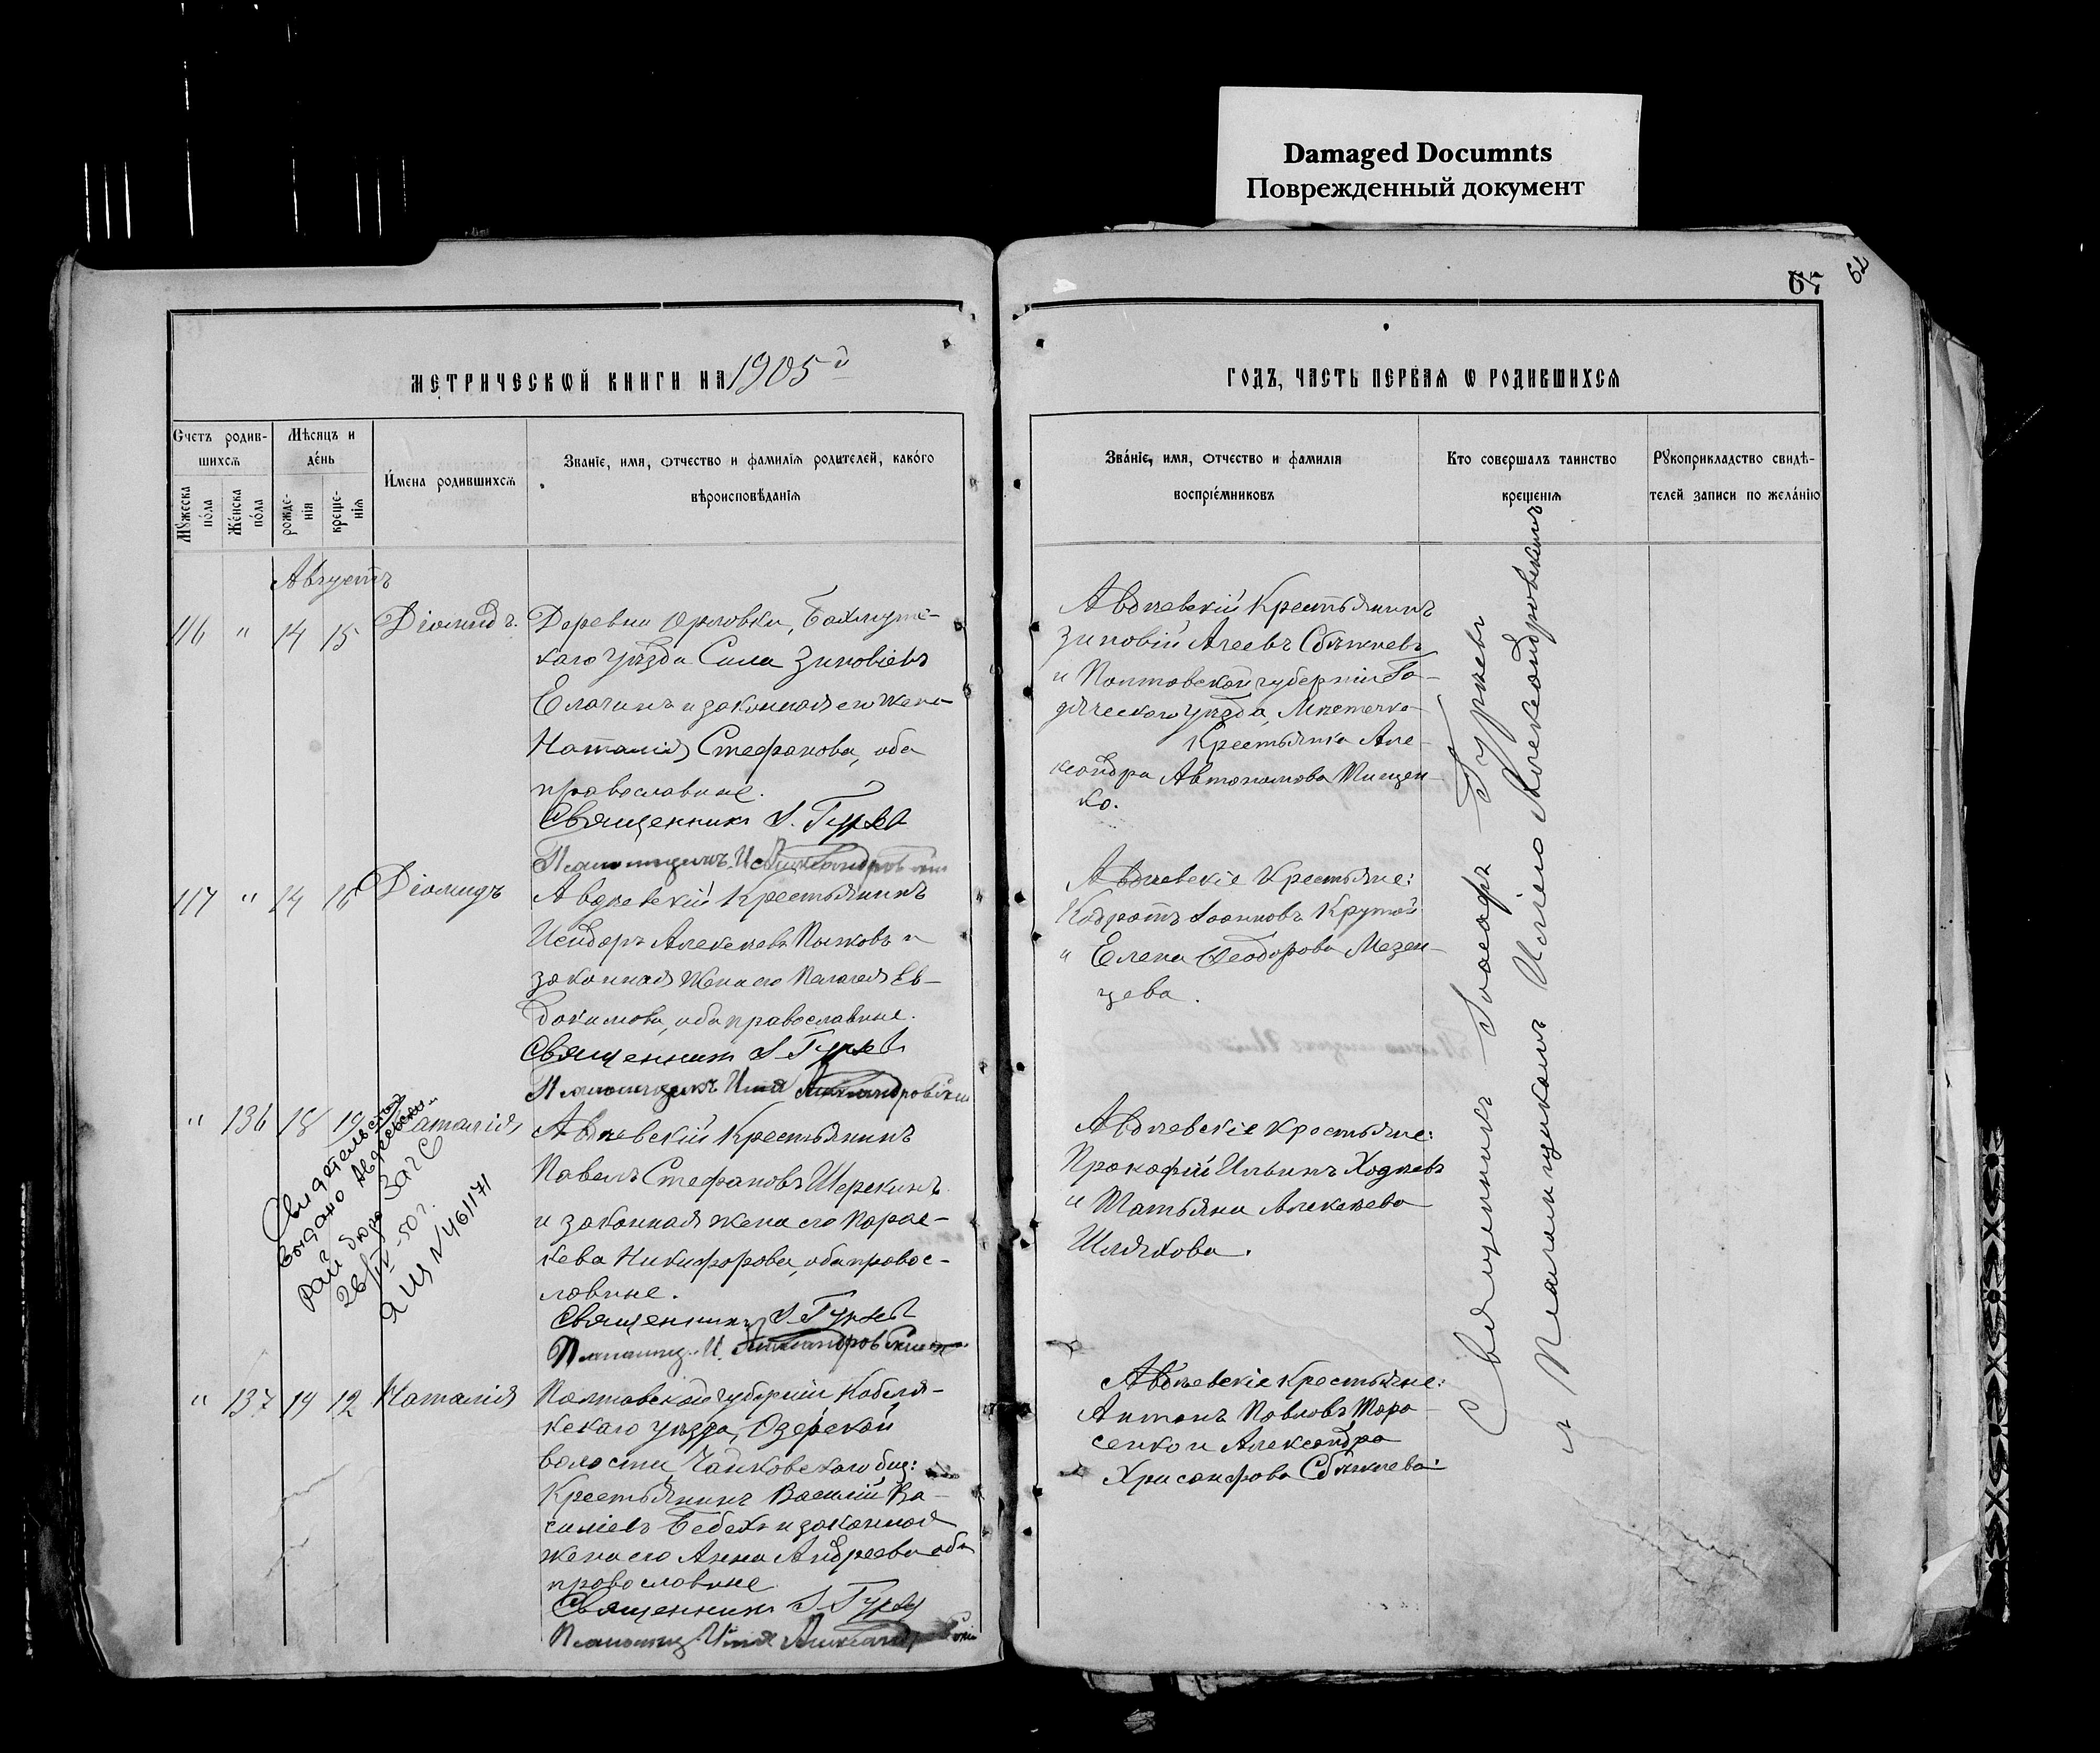 Damaged Documnts
Поврежденный документ
65
62
МЕТРИЧЕСКѠЙ КНИГИ НА 1905й
ГОДЪ, ЧАСТЬ ПЕРВАЯ Ѡ РОДИВШИХСЯ
Счетъ родив-
шихсѧ
Мꙋжеска
по́ла
Же́нска
по́ла
Мѣсяцъ и
де́нь
рожде-
нія
креще-
нія
И́мена родившихсѧ
Званіе, имя, ѻтчество и фамилія родителей, како́го
вѣроисповѣ́данія
Зва́ніе, имя, ѻтчество и фамилія
воспріе́мниковъ
Кто совершалъ таинство
крещенія
Рꙋкоприкладство свидѣ-
телей записи по жела́нію
Августъ
116 " 14 15 Діомидъ.
Деревни Орловки, Бахмутс-
каго уѣзда Сила Зиновіевъ
Елагинъ и законная его жена
Наталія Стефанова, оба
православные.
Священникъ І. Гурьевъ
Псаломщикъ
Авдѣевскій Крестьянинъ
Зиновій Агеевъ
и Полтавской губерніи Га-
дячскаго уѣзда, Мѣстечка
Крестьянка Але-
ксандра Автономова Тищен-
ко.
117 " 14 16 Діомидъ
Авдѣевскій Крестьянинъ
Исидоръ Алексѣевъ Пыжовъ и
законная жена его Пелагея Ев-
докимова, оба православные.
Священникъ І. Гурьевъ
Псаломщикъ Илія Александровскій
Авдѣевскіе Крестьяне:
Кодратъ Іоанновъ Крутой
" Елена Ѳеодорова Мезен-
цева.
" 136 18 19 Наталія
Авдѣевскій Крестьянинъ
Павелъ Стефановъ Шерекинъ
и законная жена его Парас-
кева Никифорова, оба правос-
лавные.
Священникъ І. Гурьевъ
Псаломщ. И. Александровскій
Свидетельство
выдано Авдеевским
рай бюро ЗАГС
26/IV-50г.
ЯЩ N461171
Авдѣевскіе крестьяне:
Прокофій Ильинъ Ходневъ
и Татьяна Алексѣева
Шляхова.
" 137 19 19 Наталія
Полтавской губерніи, Кобеля-
кскаго уѣзда, Озерской
волости, Чайковскаго общ:
Крестьянинъ Василій Ва-
силіевъ Бебехъ и законная
жена его Анна Андреева оба
православные
Священникъ І. Гурьевъ
Псаломщ. Илія Александровскій
Авдѣевскіе крестьяне:
Антонъ Павловъ Тара-
сенко и Александра
Хрисанфова
Священникъ Іоасафъ Гурьевъ
и Псаломщикомъ Иліею Александровскимъ